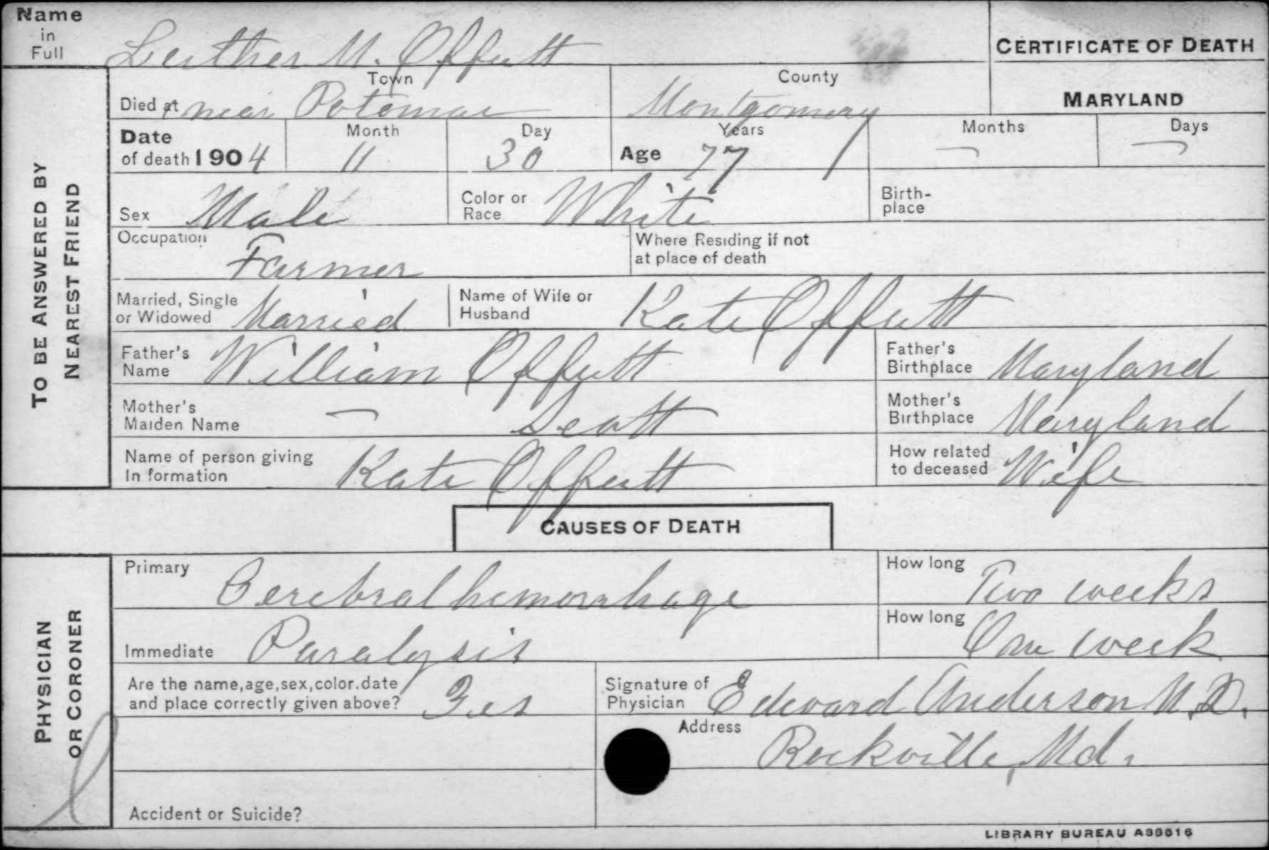 Name in Full Luther M. Offutt
CERTIFICATE OF DEATH
MARYLAND
TO BE ANSWERED BY NEAREST FRIEND
Died at near Potomac Town Montgomery County
Date of death 1904 Month 11 Day 30 Age Years 77 Months — Days —
Sex Male Color or Race White Birth-place
Occupation Farmer Where Residing if not at place of death
Married, Single or Widowed Married Name of Wife or Husband Kate Offutt
Father's Name William Offutt Father's Birthplace Maryland
Mother's Maiden Name — Scott Mother's Birthplace Maryland
Name of person giving In formation Kate Offutt How related to deceased Wife
CAUSES OF DEATH
PHYSICIAN OR CORONER
Primary Cerebral hemorrhage How long Two weeks
Immediate Paralysis How long One week
Are the name, age, sex, color. date and place correctly given above? Yes Signature of Physician Edward Anderson M.D.
Address Rockville, Md.
Accident or Suicide?
LIBRARY BUREAU A39616